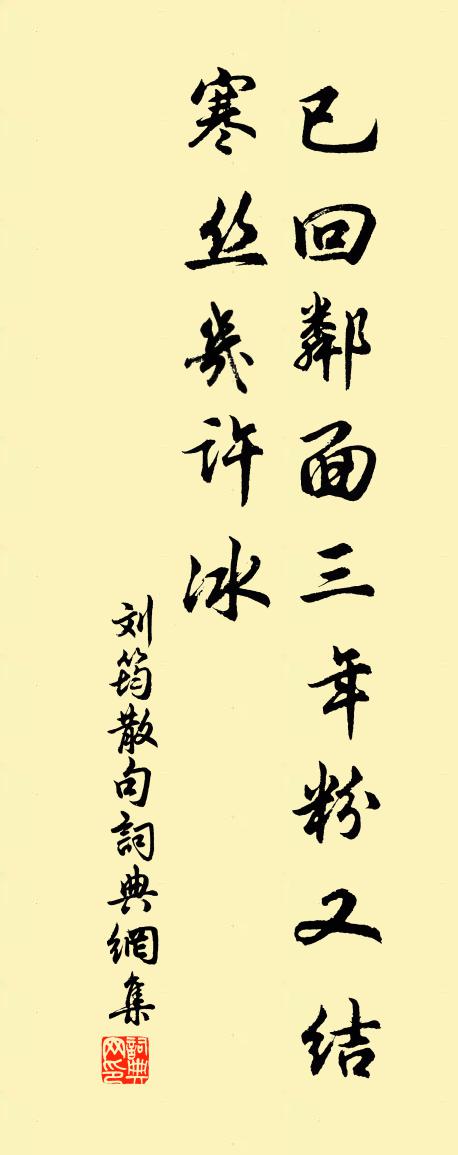 已回鄰面三年粉又结
寒丝幾许冰
刘筠散句詞典網集
詞典网印